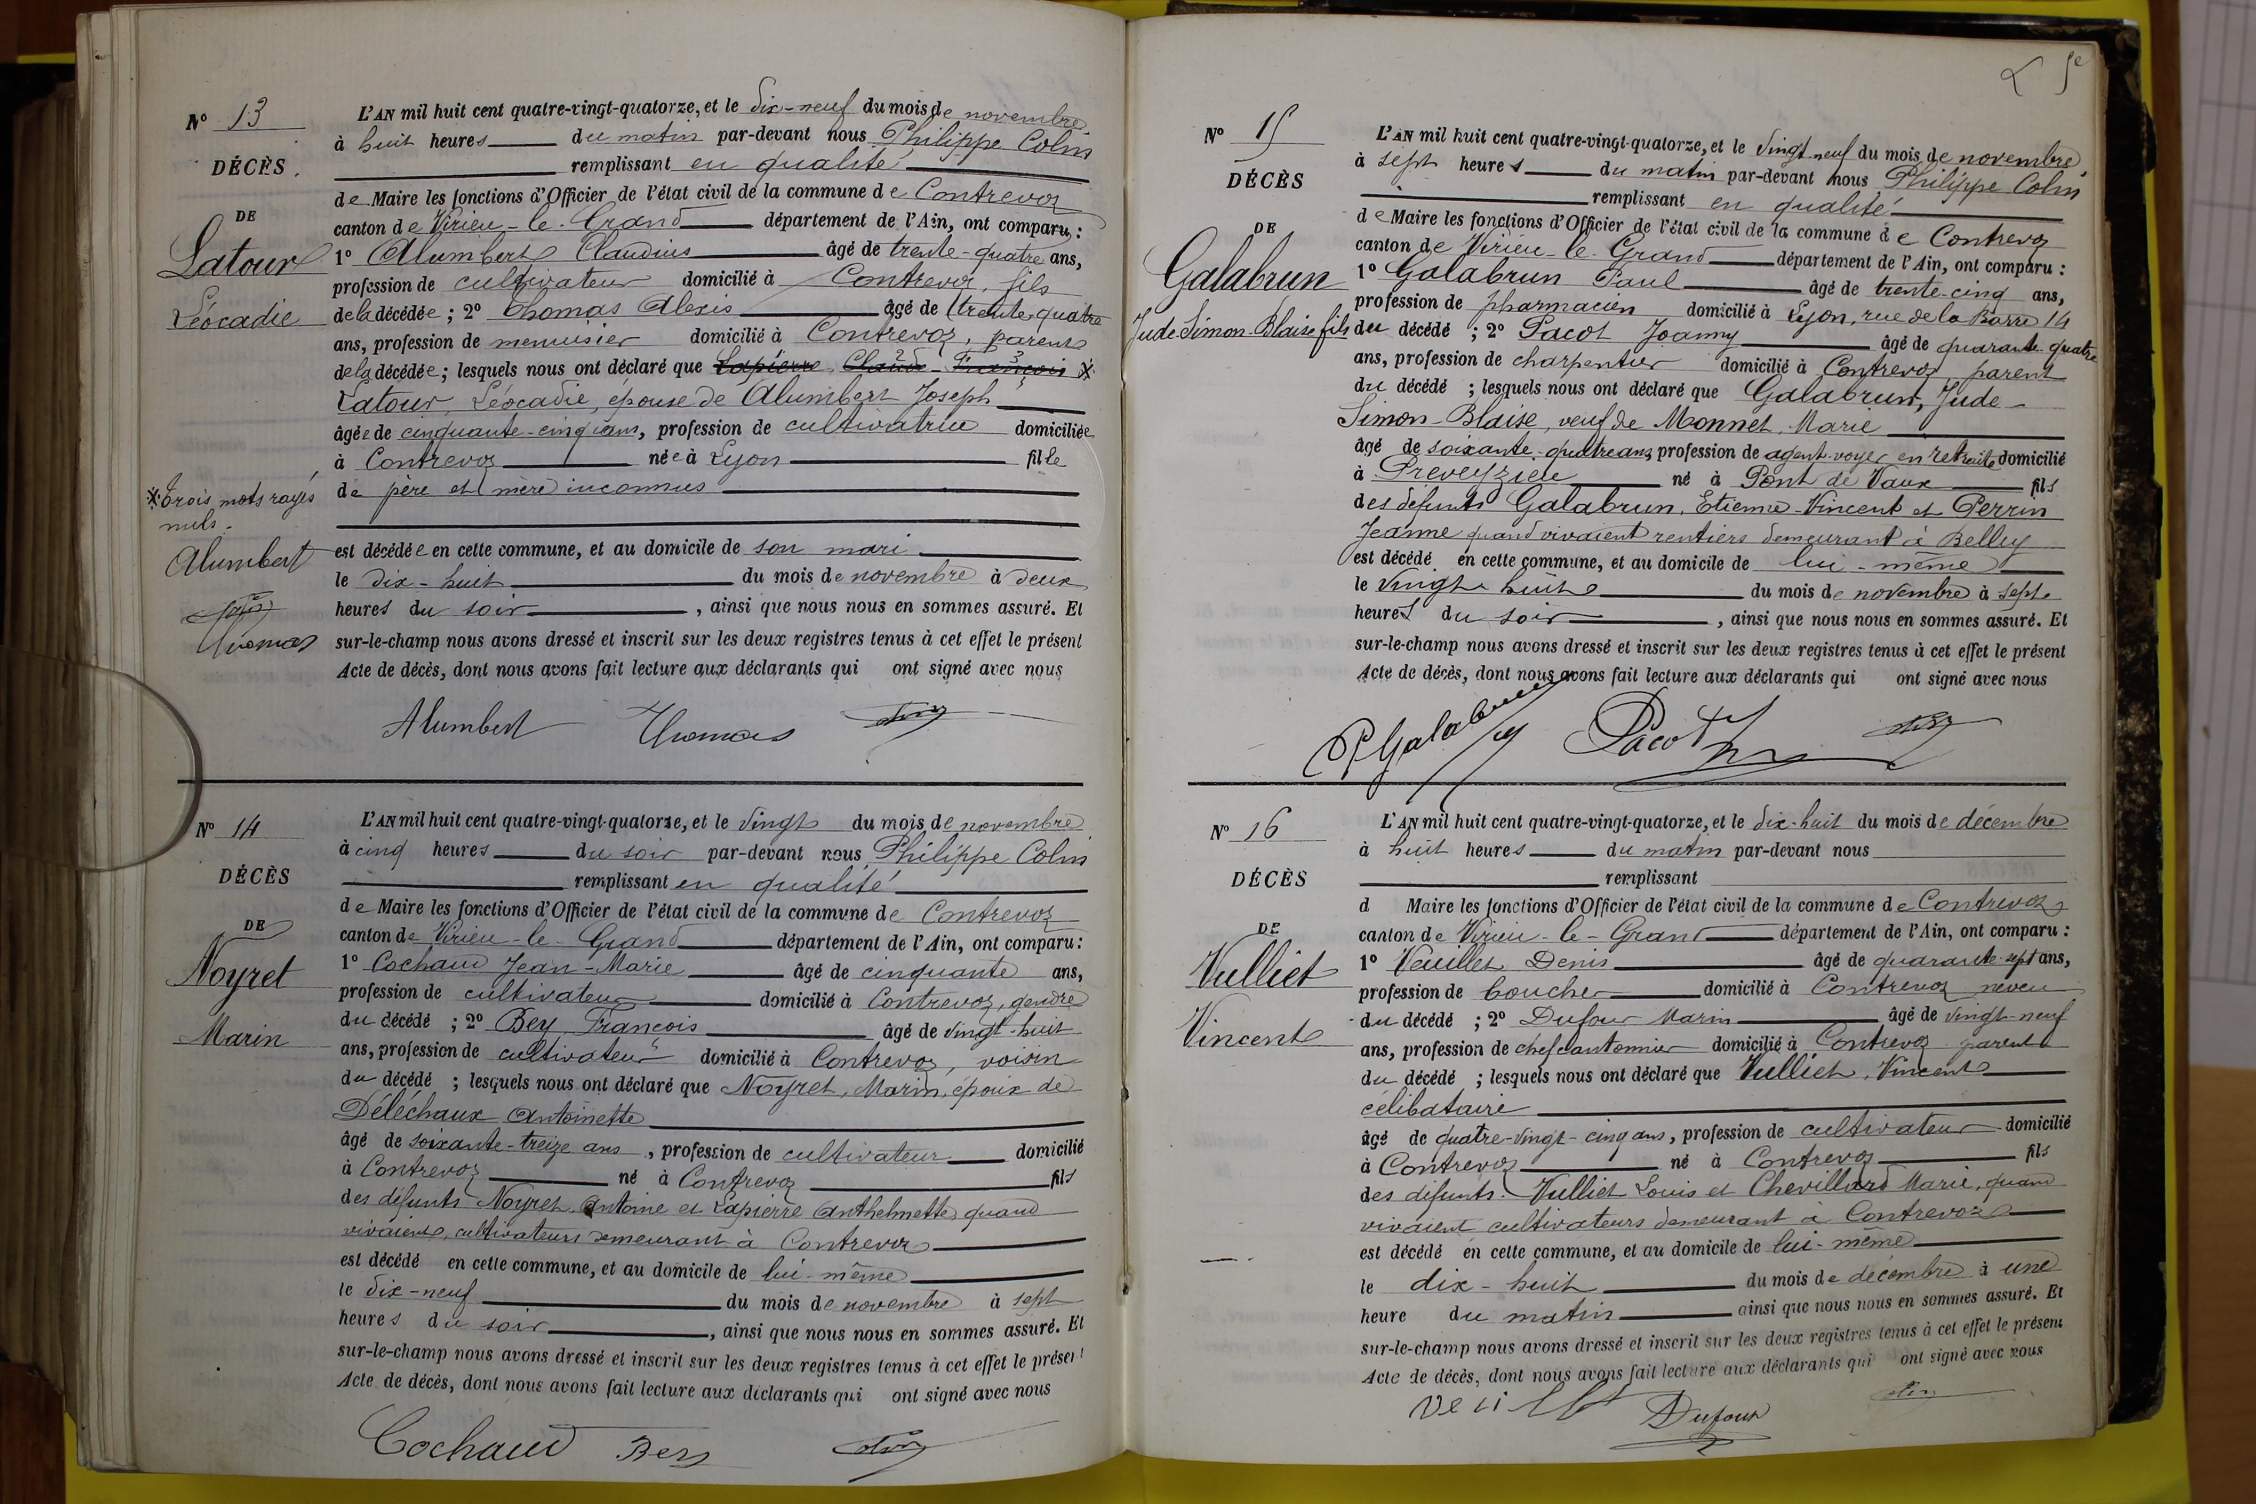 N° 13
DÉCÈS
DE
Latour
Léocadie
L'AN mil huit cent quatre-vingt-quatorze, et le dix-neuf du mois de novembre
à huit heures du matin par-devant nous Philippe Colin
remplissant en qualité
de Maire les fonctions d'Officier de l'état civil de la commune de Contrevoz
canton de Virieu-le-Grand département de l'Ain, ont comparu :
1° Alumbert Claudius âgé de trente-quatre ans,
profession de cultivateur domicilié à Contrevoz, fils
de la décédée ; 2° Thomas Alexis âgé de trente quatre
ans, profession de menuisier domicilié à Contrevoz, parents
de la décédée ; lesquels nous ont déclaré que Lapierre Claude François X
Latour, Léocadie, épouse de Alumbert Joseph
âgée de cinquante-cinq ans, profession de cultivatrice domiciliée
à Contrevoz née à Lyon fille
de père et mère inconnus
est décédée en cette commune, et au domicile de son mari
le dix-huit du mois de novembre à deux
heures du soir, ainsi que nous nous en sommes assuré. Et
sur-le-champ nous avons dressé et inscrit sur les deux registres tenus à cet effet le présent
Acte de décès, dont nous avons fait lecture aux déclarants qui ont signé avec nous
X Trois mots rayés
nuls.
Alumbert
Thomas
Alumbert Thomas
N° 14
DÉCÈS
DE
Noyret
Marin
L'AN mil huit cent quatre-vingt-quatorze, et le vingt du mois de novembre
à cinq heures du soir par-devant nous Philippe Colin
remplissant en qualité
de Maire les fonctions d'Officier de l'état civil de la commune de Contrevoz
canton de Virieu-le-Grand département de l'Ain, ont comparu :
1° Cochaud Jean-Marie âgé de cinquante ans,
profession de cultivateur domicilié à Contrevoz, gendre
du décédé ; 2° Bey François âgé de vingt-huit
ans, profession de cultivateur domicilié à Contrevoz, voisin
du décédé ; lesquels nous ont déclaré que Noyret, Marin, époux de
Déléchaux Antoinette
âgé de soixante-treize ans, profession de cultivateur domicilié
à Contrevoz né à Contrevoz fils
des défunts Noyret Antoine et Lapierre Anthelmette quand
vivaient, cultivateurs demeurant à Contrevoz
est décédé en cette commune, et au domicile de lui-même
le dix-neuf du mois de novembre à sept
heures du soir, ainsi que nous nous en sommes assuré. Et
sur-le-champ nous avons dressé et inscrit sur les deux registres tenus à cet effet le présent
Acte de décès, dont nous avons fait lecture aux déclarants qui ont signé avec nous
Cochaud Bey
5e
N° 15
DÉCÈS
DE
Galabrun
Jude Simon Blaise fils
L'AN mil huit cent quatre-vingt-quatorze, et le vingt neuf du mois de novembre
à sept heures du matin par-devant nous Philippe Colin
remplissant en qualité
de Maire les fonctions d'Officier de l'état civil de la commune de Contrevoz
canton de Virieu-le-Grand département de l'Ain, ont comparu :
1° Galabrun Paul âgé de trente-cinq ans,
profession de pharmacien domicilié à Lyon, rue de la Barre 14
du décédé ; 2° Pacot Joanny âgé de quarante quatre
ans, profession de charpentier domicilié à Contrevoz, parent
du décédé ; lesquels nous ont déclaré que Galabrun, Jude-
Simon-Blaise, veuf de Monnet Marie
âgé de soixante-quatre ans profession de agent-voyer en retraite domicilié
à Preveyzieu né à Pont de Vaux fils
des défunts Galabrun, Etienne-Vincent et Perrin
Jeanne quand vivaient rentiers demeurant à Belley
est décédé en cette commune, et au domicile de lui-même
le vingt huit du mois de novembre à sept
heures du soir, ainsi que nous nous en sommes assuré. Et
sur-le-champ nous avons dressé et inscrit sur les deux registres tenus à cet effet le présent
Acte de décès, dont nous avons fait lecture aux déclarants qui ont signé avec nous
P Galabrun Pacot
N° 16
DÉCÈS
DE
Vulliet
Vincent
L'AN mil huit cent quatre-vingt-quatorze, et le dix-huit du mois de décembre
à huit heures du matin par-devant nous
remplissant
d Maire les fonctions d'Officier de l'état civil de la commune de Contrevoz
canton de Virieu-le-Grand département de l'Ain, ont comparu :
1° Veuillet Denis âgé de quarante-sept ans,
profession de boucher domicilié à Contrevoz neveu
du décédé ; 2° Dufour Marin âgé de vingt-neuf
ans, profession de chef cantonnier domicilié à Contrevoz parent
du décédé ; lesquels nous ont déclaré que Vulliet, Vincent
célibataire
âgé de quatre-vingt-cinq ans, profession de cultivateur domicilié
à Contrevoz né à Contrevoz fils
des défunts Vulliet Louis et Chevillard Marie, quand
vivaient cultivateurs demeurant à Contrevoz
est décédé en cette commune, et au domicile de lui-même
le dix-huit du mois de décembre à une
heure du matin ainsi que nous nous en sommes assuré. Et
sur-le-champ nous avons dressé et inscrit sur les deux registres tenus à cet effet le présent
Acte de décès, dont nous avons fait lecture aux déclarants qui ont signé avec nous
Veuillet Dufour